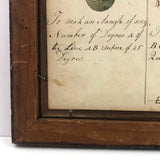 To make an Angle of any
Number of Degrees
the Line AB Suppose of 35
Degrees